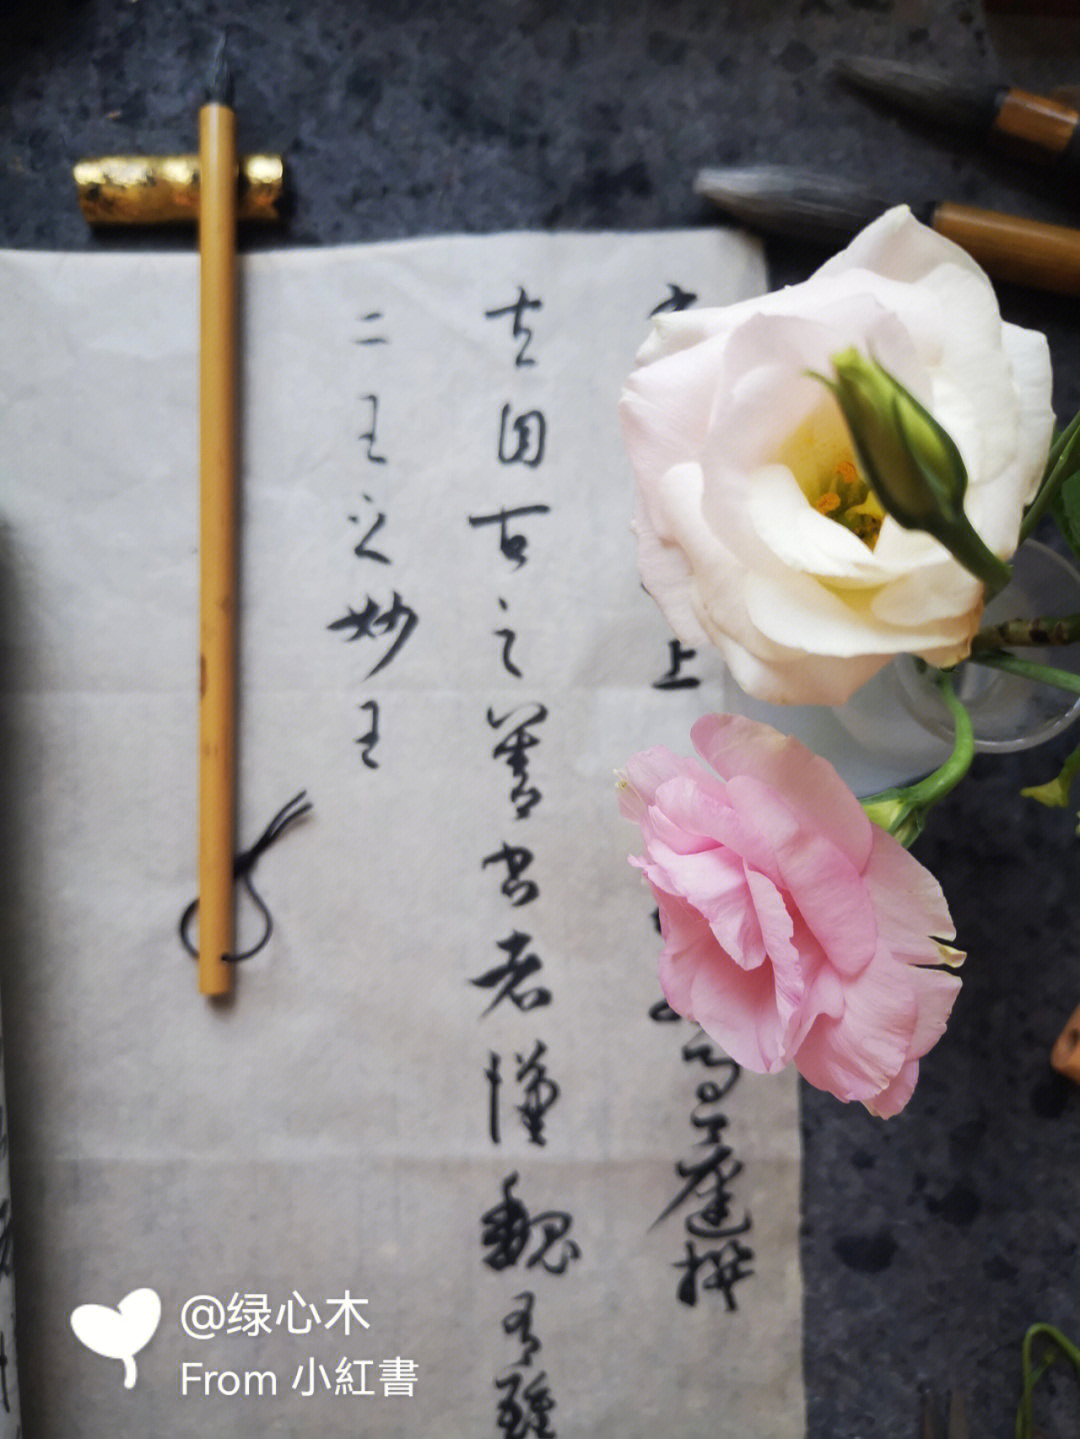 上 過庭撰
夫自古之善書者漢魏有鍾
二王之妙王
@绿心木
From 小紅書